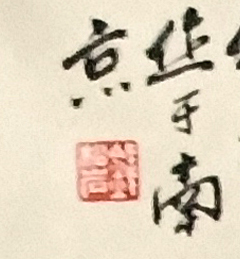 作于南
京